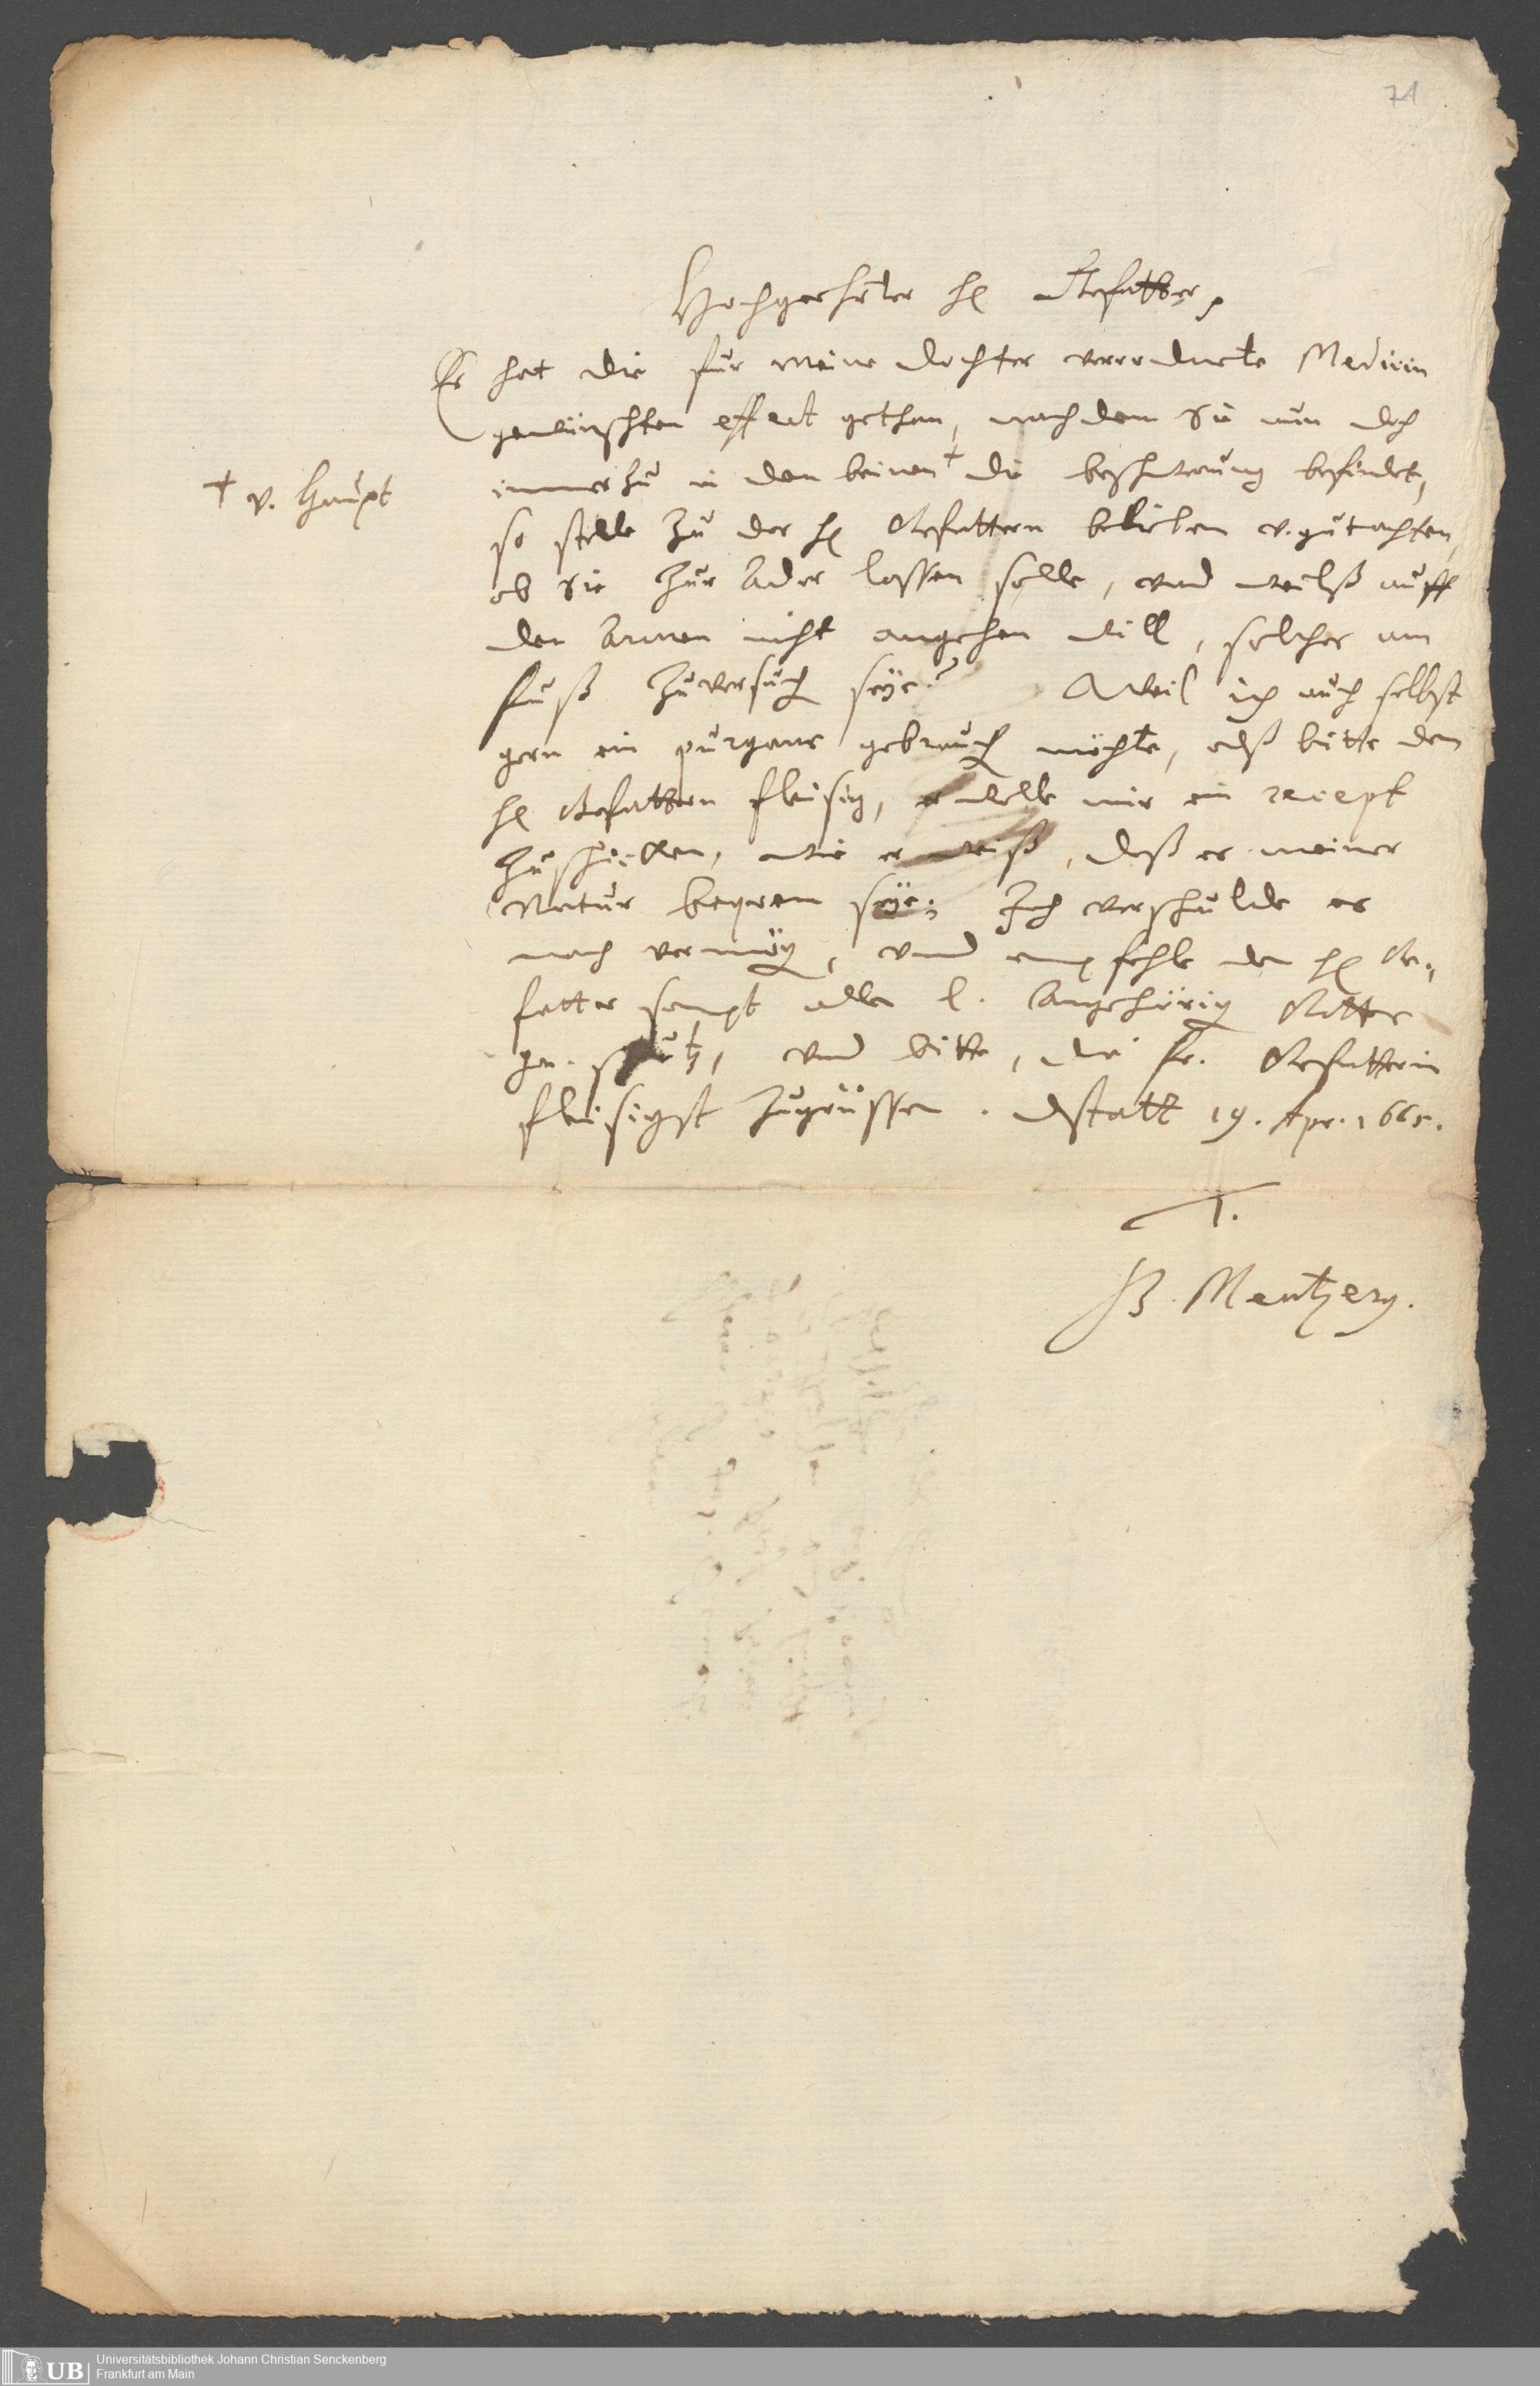 71
Hochgeehrter H Gefatter,
Es hat die für meine dochter verordnete Medicin
gewünschten effect gethan, nachdem sie nun doch
immerzu in den beinen † die beschwerung befindet,
† v. Haupt
so stelle zu der H Gefattern belieben v. gutachten,
ob sie zur Ader lassen solle, vnd weilß auff
den Armen nicht angehen will, solches am
fuß zuversuch seye? Weil ich auch selbst
gern ein purgans gebrauch möchte, alß bitte den
H Gefattern fleisig, er wolle mir ein recept
zuschicken, wie er weiß, daß es meiner
Natur beqvem seye; Ich verschulde es
nach vermög, vnd empfehle den H Ge-
fatter sampt allen l. Angehörig Gottes
gn. schutz, vnd bitte, die fr. Gefatterin
fleisigst zugrüssen. Dstatt 19. Apr. 1665.
T.
B. Mentzerg.
UB
Universitätsbibliothek Johann Christian Senckenberg
Frankfurt am Main